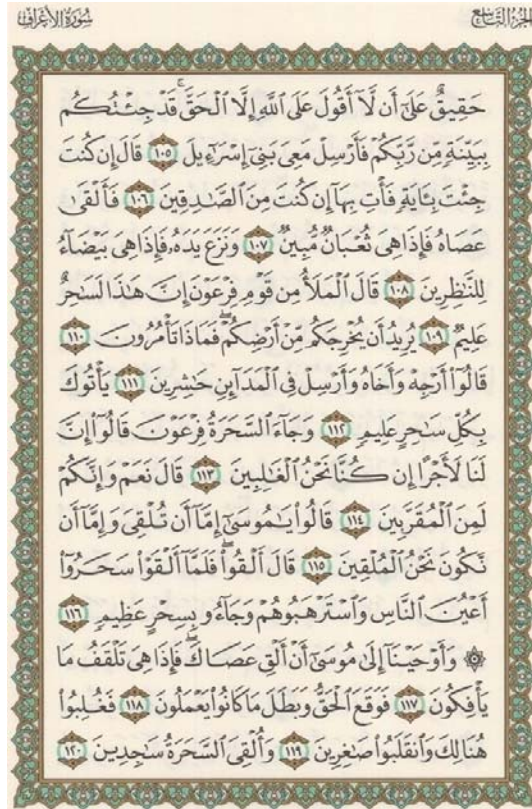 الجزء التاسع
سورة الأعراف
حَقِيقٌ عَلَىٰٓ أَن لَّآ أَقُولَ عَلَى ٱللَّهِ إِلَّا ٱلْحَقَّۚ قَدْ جِئْتُكُم
بِبَيِّنَةٍ مِّن رَّبِّكُمْ فَأَرْسِلْ مَعِىَ بَنِىٓ إِسْرَٰٓءِيلَ ١٠٥ قَالَ إِن كُنتَ
جِئْتَ بِـَٔايَةٍ فَأْتِ بِهَآ إِن كُنتَ مِنَ ٱلصَّٰدِقِينَ ١٠٦ فَأَلْقَىٰ
عَصَاهُ فَإِذَا هِىَ ثُعْبَانٌ مُّبِينٌ ١٠٧ وَنَزَعَ يَدَهُۥ فَإِذَا هِىَ بَيْضَآءُ
لِلنَّٰظِرِينَ ١٠٨ قَالَ ٱلْمَلَأُ مِن قَوْمِ فِرْعَوْنَ إِنَّ هَٰذَا لَسَٰحِرٌ
عَلِيمٌ ١٠٩ يُرِيدُ أَن يُخْرِجَكُم مِّنْ أَرْضِكُمْۖ فَمَاذَا تَأْمُرُونَ ١١٠
قَالُوٓا۟ أَرْجِهْ وَأَخَاهُ وَأَرْسِلْ فِى ٱلْمَدَآئِنِ حَٰشِرِينَ ١١١ يَأْتُوكَ
بِكُلِّ سَٰحِرٍ عَلِيمٍ ١١٢ وَجَآءَ ٱلسَّحَرَةُ فِرْعَوْنَ قَالُوٓا۟ إِنَّ
لَنَا لَأَجْرًا إِن كُنَّا نَحْنُ ٱلْغَٰلِبِينَ ١١٣ قَالَ نَعَمْ وَإِنَّكُمْ
لَمِنَ ٱلْمُقَرَّبِينَ ١١٤ قَالُوا۟ يَٰمُوسَىٰٓ إِمَّآ أَن تُلْقِىَ وَإِمَّآ أَن
نَّكُونَ نَحْنُ ٱلْمُلْقِينَ ١١٥ قَالَ أَلْقُوا۟ۖ فَلَمَّآ أَلْقَوْا۟ سَحَرُوٓا۟
أَعْيُنَ ٱلنَّاسِ وَٱسْتَرْهَبُوهُمْ وَجَآءُو بِسِحْرٍ عَظِيمٍ ١١٦
۞ وَأَوْحَيْنَآ إِلَىٰ مُوسَىٰٓ أَنْ أَلْقِ عَصَاكَۖ فَإِذَا هِىَ تَلْقَفُ مَا
يَأْفِكُونَ ١١٧ فَوَقَعَ ٱلْحَقُّ وَبَطَلَ مَا كَانُوا۟ يَعْمَلُونَ ١١٨ فَغُلِبُوا۟
هُنَالِكَ وَٱنقَلَبُوا۟ صَٰغِرِينَ ١١٩ وَأُلْقِىَ ٱلسَّحَرَةُ سَٰجِدِينَ ١٢٠